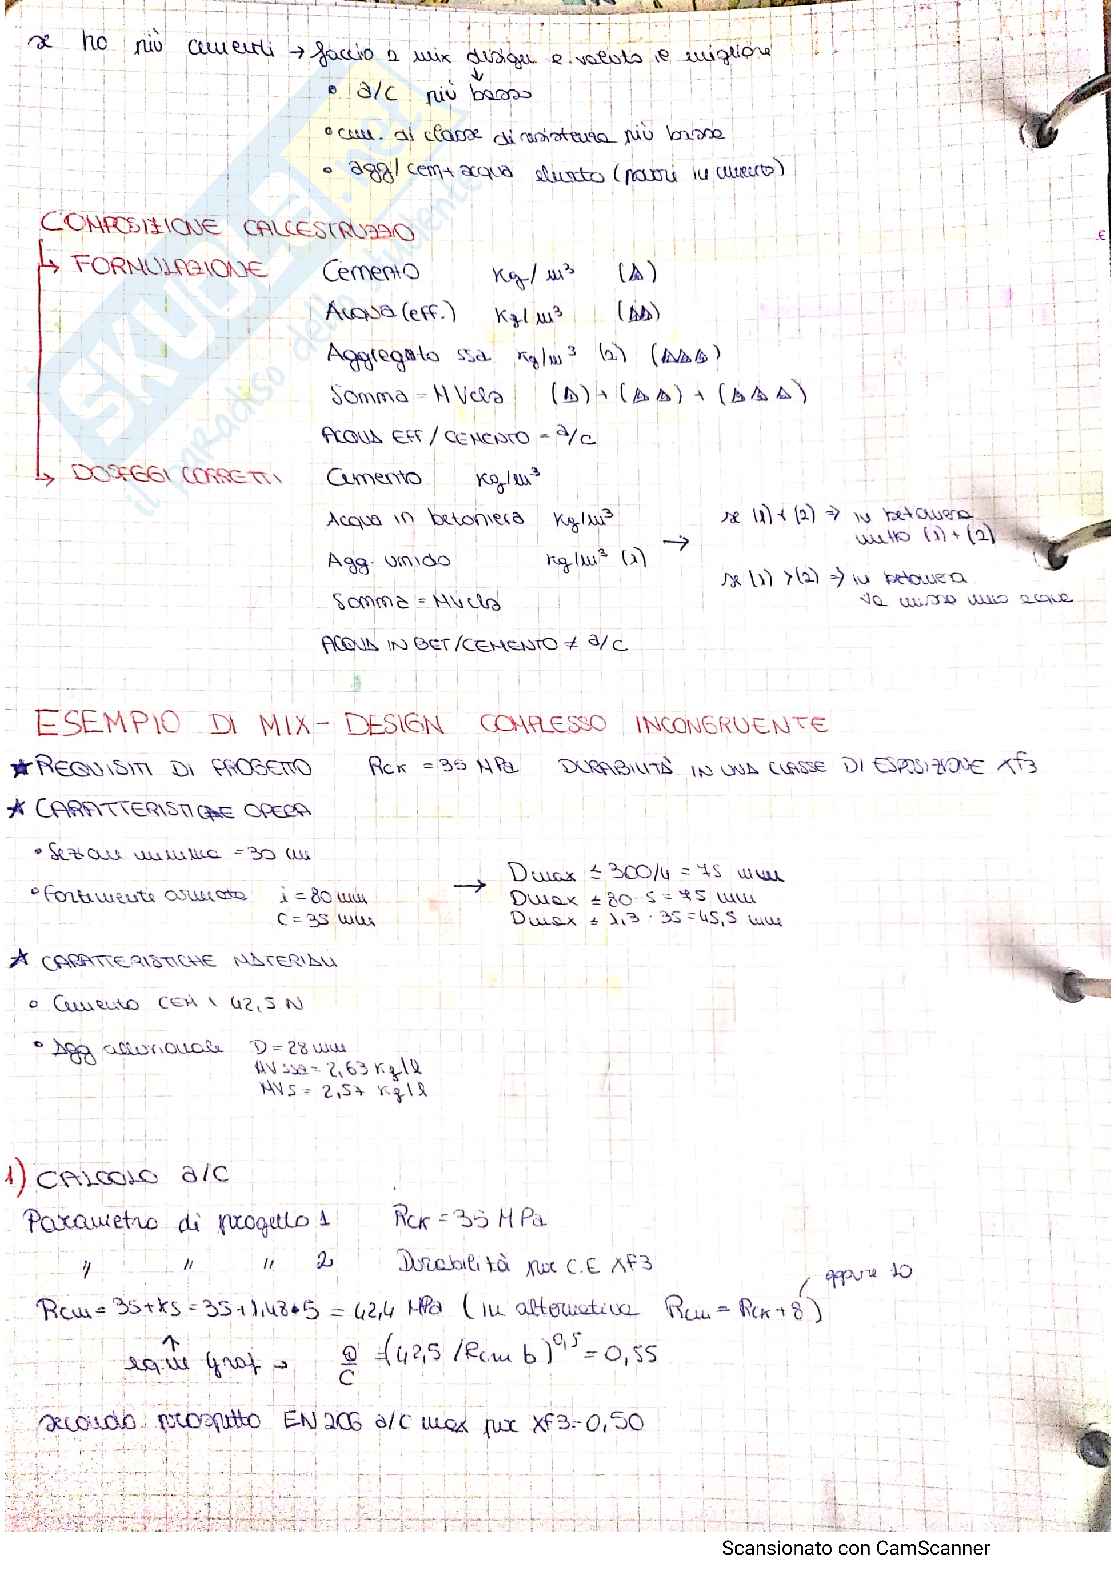 se ho più cementi → faccio 2 mix design e valuto il migliore
• a/c più basso
• cem. di classe di resistenza più bassa
• agg/cem+acqua elevato (
COMPOSIZIONE CALCESTRUZZO
↳ FORMULAZIONE Cemento Kg/m³ (Δ)
Acqua (eff.) Kg/m³ (ΔΔ)
Aggregato ssa Kg/m³ (2) (ΔΔΔ)
Somma = MVcls (Δ) + (ΔΔ) + (ΔΔΔ)
ACQUA EFF/CEMENTO = a/c
↳ DOSAGGI CORRETTI Cemento Kg/m³
Acqua in betoniera Kg/m³
Agg. umido Kg/m³ (1)
→ se (1) < (2) ⇒ in betoniera
metto (1) + (2)
se (1) > (2) ⇒ in betoniera
va messa meno acqua
Somma = MVcls
ACQUA IN BET/CEMENTO ≠ a/c
ESEMPIO DI MIX-DESIGN COMPLESSO INCONGRUENTE
★ REQUISITI DI PROGETTO Rck = 35 MPa DURABILITÀ IN UNA CLASSE DI ESPOSIZIONE XF3
★ CARATTERISTICHE OPERA
• Sezione minima = 30 cm
• Fortemente armata i = 80 mm
c = 35 mm
→ Dmax ≤ 300/4 = 75 mm
Dmax ≤ 80-5 = 75 mm
Dmax ≤ 1,3 · 35 = 45,5 mm
★ CARATTERISTICHE MATERIALI
• Cemento CEM I 42,5 N
• Agg alluvionale D = 28 mm
MVssa = 2,63 Kg/l
MVS = 2,57 Kg/l
1) CALCOLO a/c
Parametro di progetto 1 Rck = 35 MPa
" " " 2 Durabilità per C.E XF3
oppure 10
Rcm = 35 + ks = 35 + 1,48 • 5 = 42,4 MPa (in alternativa Rcm = Rck + 8)
↑
graf → a/c = (42,5/Rcm b)^0,5 = 0,55
secondo prospetto EN 206 a/c max per XF3 = 0,50
SKUOLA.net
il paradiso dello studente
€
Scansionato con CamScanner